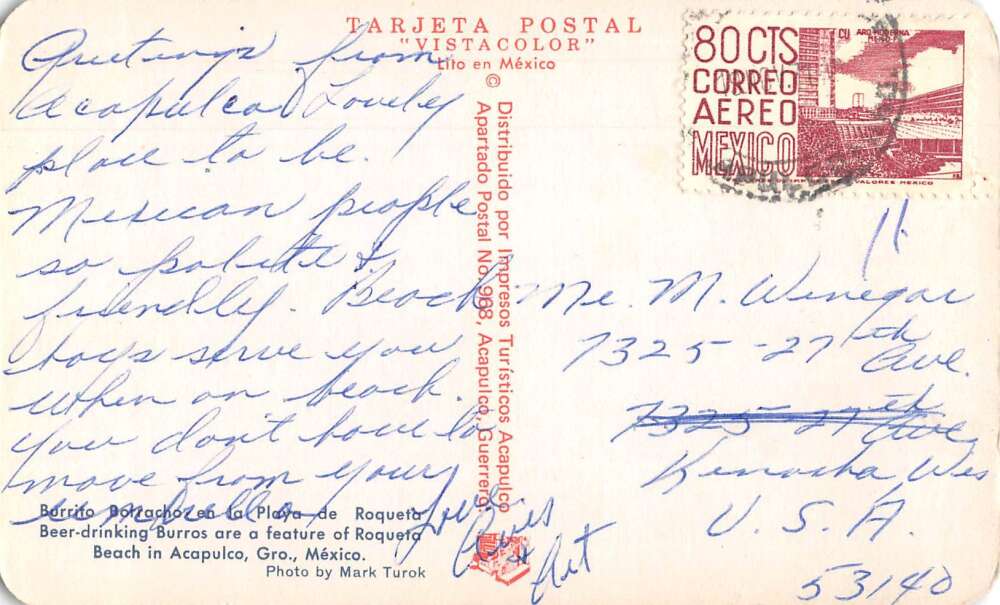 TARJETA POSTAL
"VISTACOLOR"
Lito en México
©
Distribuido por Impresos Turísticos Acapulco
Apartado Postal No. 908, Acapulco, Guerrero
80 CTS
CORREO
AEREO
MEXICO
CU ARQ. MODERNA
MEXICO
VALORES MEXICO
Greetings from
Acapulco Lovely
place to be.
Mexican people
so polite &
friendly. Beach
boys serve you
when on beach.
You don't have to
move from your
umbrella
Love
Avis
+ Art
Mr. M. Winegar
7325-27th Ave.
7325 27th Ave
Kenosha Wis
U.S.A.
53140
Burrito Borracho en la Playa de Roqueta
Beer-drinking Burros are a feature of Roqueta
Beach in Acapulco, Gro., México.
Photo by Mark Turok